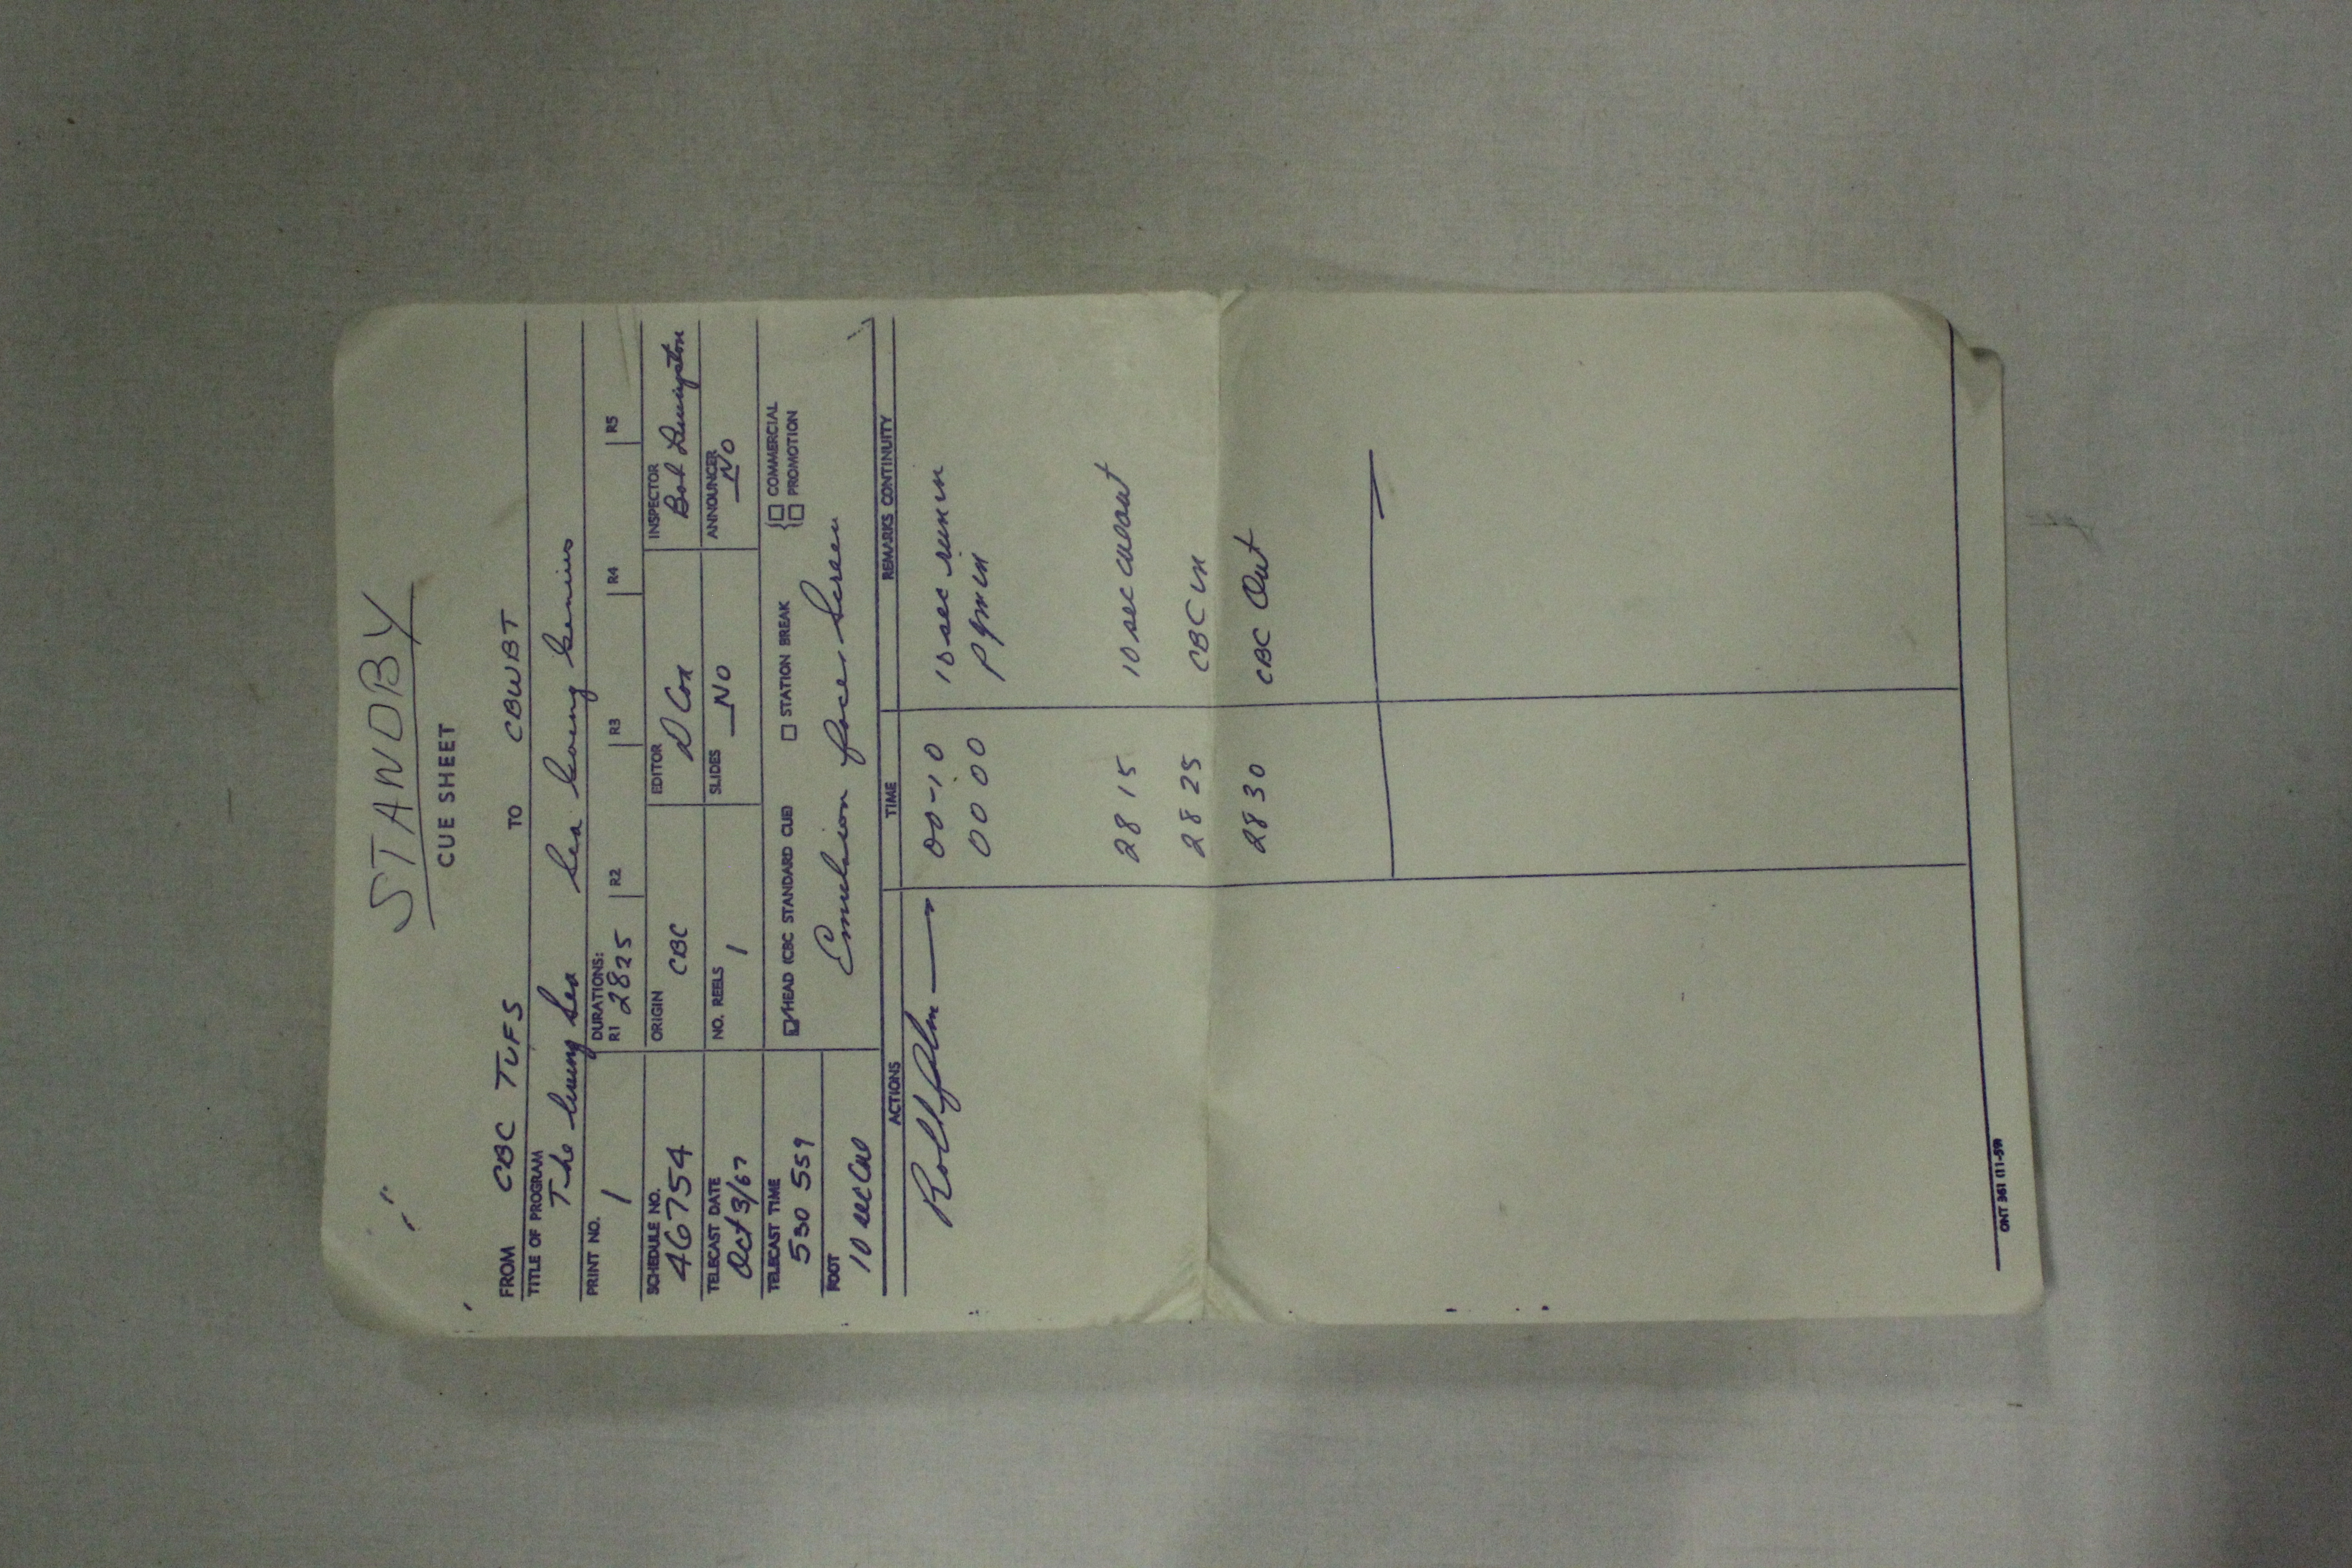 STANDBY
CUE SHEET
FROM CBC TVFS TO CBWBT
TITLE OF PROGRAM The Living Sea Sea Going Genius
PRINT NO. 1
DURATIONS:
R1 2825 R2 R3 R4 R5
SCHEDULE NO. 46754
ORIGIN CBC
EDITOR D Cox
INSPECTOR Bob
TELECAST DATE Oct 3/67
NO. REELS 1
SLIDES NO
ANNOUNCER NO
TELECAST TIME 530 559
☑ HEAD (CBC STANDARD CUE) ☐ STATION BREAK ☐ COMMERCIAL
☐ PROMOTION
FOOT 10 sec Cue
Emulsion faces Screen
ACTIONS TIME REMARKS CONTINUITY
Roll film 00-10 10 sec run in
00 00 Pgm in
28 15 10 sec cueout
28 25 CBC in
28 30 CBC Out
ONT 361 (11-59)